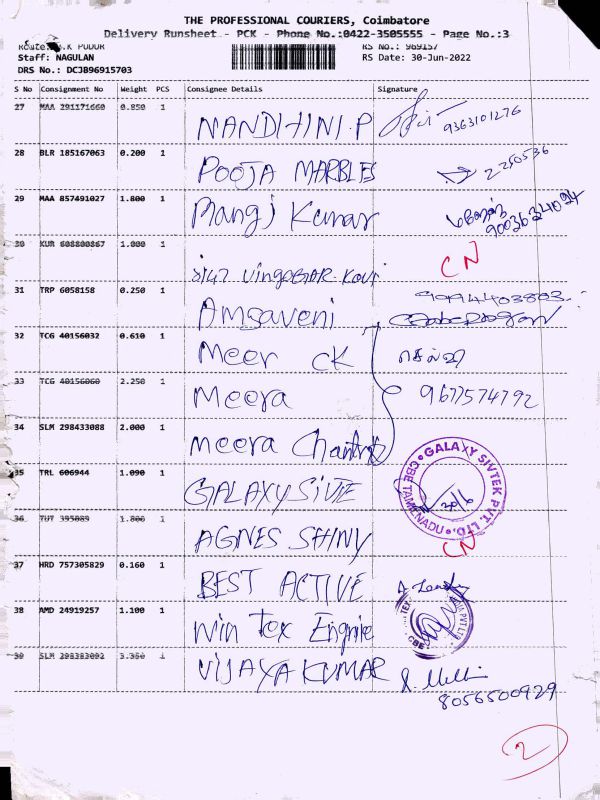 THE PROFESSIONAL COURIERS, Coimbatore
Delivery Runsheet - PCK - Phone No.:0422-3505555 - Page No.:3
Route: K PUDUR
RS No.: 969157
Staff: NAGULAN
RS Date: 30-Jun-2022
DRS No.: DCJB96915703
S No Consignment No Weight PCS Consignee Details Signature
27 MAA 291171660 0.850 1 NANDHINI.P 9363101276
28 BLR 185167063 0.200 1 POOJA MARBLES 2250536
29 MAA 857491027 1.800 1 Mangj Kumar 9003634094
30 KUR 608800867 1.000 1 CN
31 TRP 6058158 0.250 1 Amsaveni 9994403803
32 TCG 40156032 0.610 1 Meer ck
33 TCG 40156060 2.250 1 Meera 9677574792
34 SLM 298433088 2.000 1 Meera
35 TRL 606944 1.090 1 GALAXY SIVTE
GALAXY SIVTEK PVT. LTD. CBE TAMILNADU
36 TUT 395089 1.800 1 AGNES SHINY CN
37 HRD 757305829 0.160 1 BEST ACTIVE
38 AMD 24919257 1.100 1 Win Tex Engnie
39 SLM 298383092 3.350 1 VIJAYA KUMAR
8056500929
2